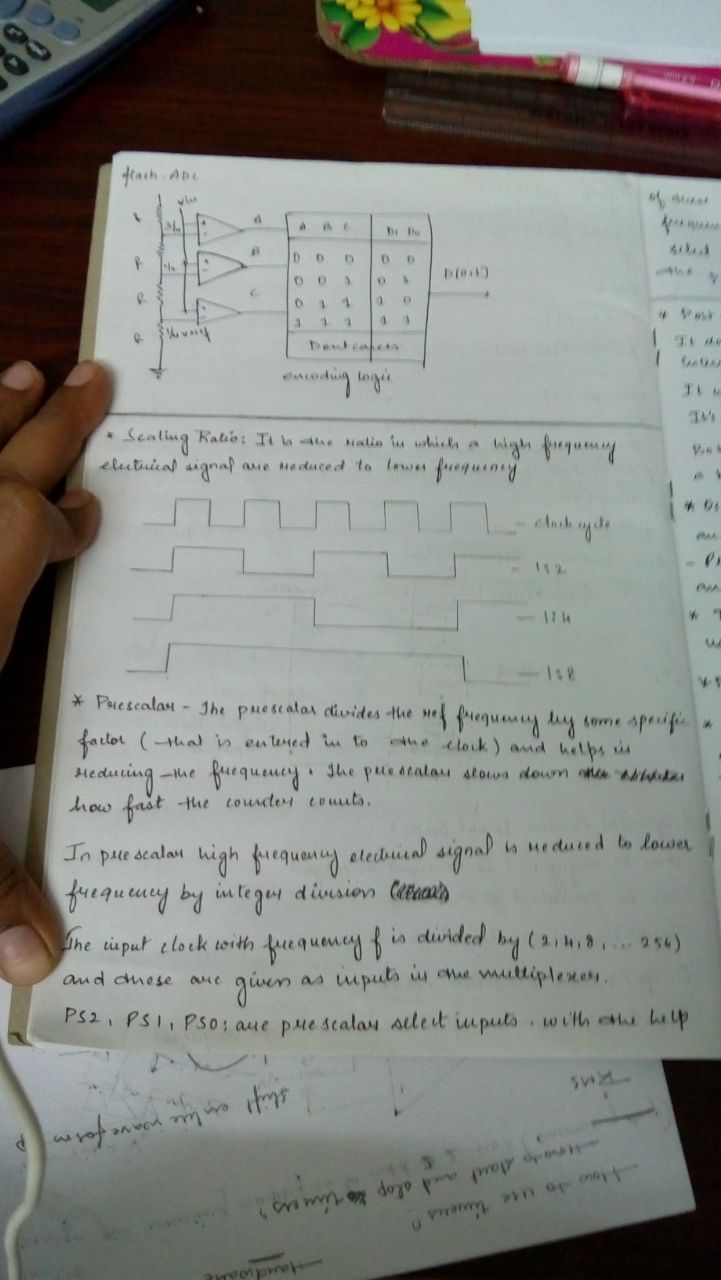 flash-ADC
Vin
R
R
R
R
A
B
C
A B C D1 D0
0 0 0 0 0
0 0 1 0 1
0 1 1 1 0
1 1 1 1 1
Dont cares
D(out)
encoding logic
* Scaling Ratio: It is the ratio in which a high frequency
electrical signal are reduced to lower frequency
- clock cycle
- 1:2
- 1:4
- 1:8
* Prescalar - The prescalar divides the ref frequency by some specific
factor (that is entered in to the clock) and helps in
reducing the frequency. The prescalar slows down
how fast the counter counts.
In prescalar high frequency electrical signal is reduced to lower
frequency by integer division
The input clock with frequency f is divided by (2,4,8, ... 256)
and these are given as inputs in the multiplexer.
PS2, PS1, PS0: are prescalar select inputs. with the help
of
frequen
select
* Post
It do
It
It's
a
RMS
shift waveform
- How to start and stop timers?
- How to use timers?
- Hardware